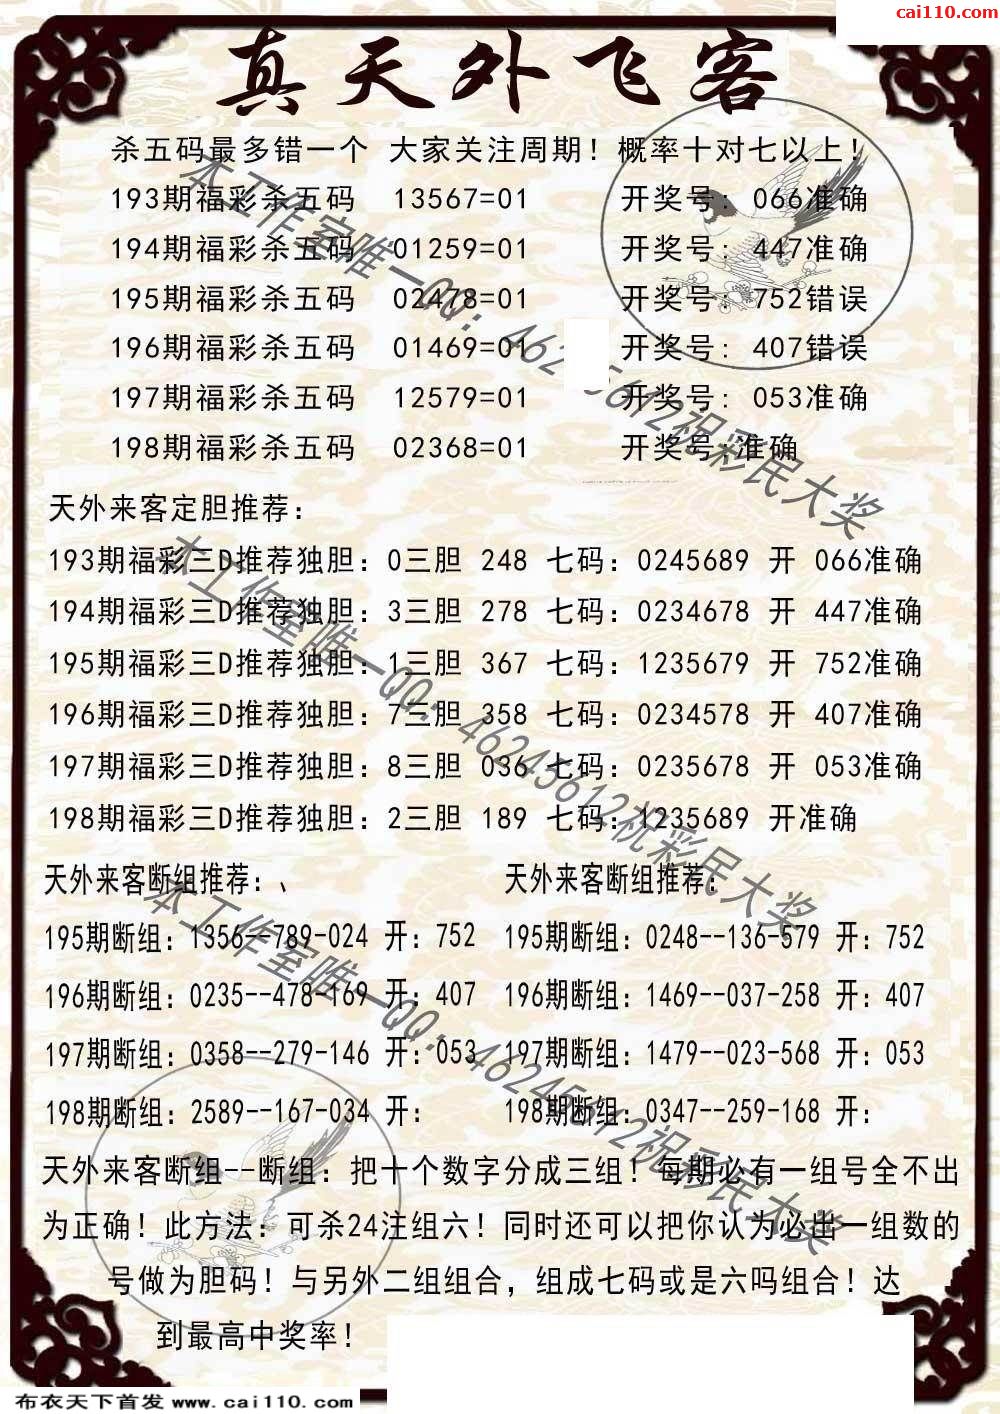 cai110.com
真天外飞客
杀五码最多错一个 大家关注周期！概率十对七以上！
193期福彩杀五码 13567=01 开奖号: 066准确
194期福彩杀五码 01259=01 开奖号: 447准确
195期福彩杀五码 02478=01 开奖号: 752错误
196期福彩杀五码 01469=01 开奖号: 407错误
197期福彩杀五码 12579=01 开奖号: 053准确
198期福彩杀五码 02368=01 开奖号:准确
天外来客定胆推荐:
193期福彩三D推荐独胆: 0三胆 248 七码: 0245689 开 066准确
194期福彩三D推荐独胆: 3三胆 278 七码: 0234678 开 447准确
195期福彩三D推荐独胆: 1三胆 367 七码: 1235679 开 752准确
196期福彩三D推荐独胆: 7三胆 358 七码: 0234578 开 407准确
197期福彩三D推荐独胆: 8三胆 036 七码: 0235678 开 053准确
198期福彩三D推荐独胆: 2三胆 189 七码: 1235689 开准确
天外来客断组推荐:、 天外来客断组推荐:
195期断组: 1356--789-024 开: 752 195期断组: 0248--136-579 开: 752
196期断组: 0235--478-169 开: 407 196期断组: 1469--037-258 开: 407
197期断组: 0358--279-146 开: 053 197期断组: 1479--023-568 开: 053
198期断组: 2589--167-034 开: 198期断组: 0347--259-168 开:
天外来客断组--断组: 把十个数字分成三组！每期必有一组号全不出
为正确！此方法: 可杀24注组六！同时还可以把你认为必出一组数的
号做为胆码！与另外二组组合，组成七码或是六吗组合！达
到最高中奖率！
本工作室唯一QQ: 462 5612祝彩民大奖
本工作室唯一QQ: 46245612祝彩民大奖
本工作室唯一QQ: 46245612祝彩民大奖
布衣天下首发 www.cai110.com